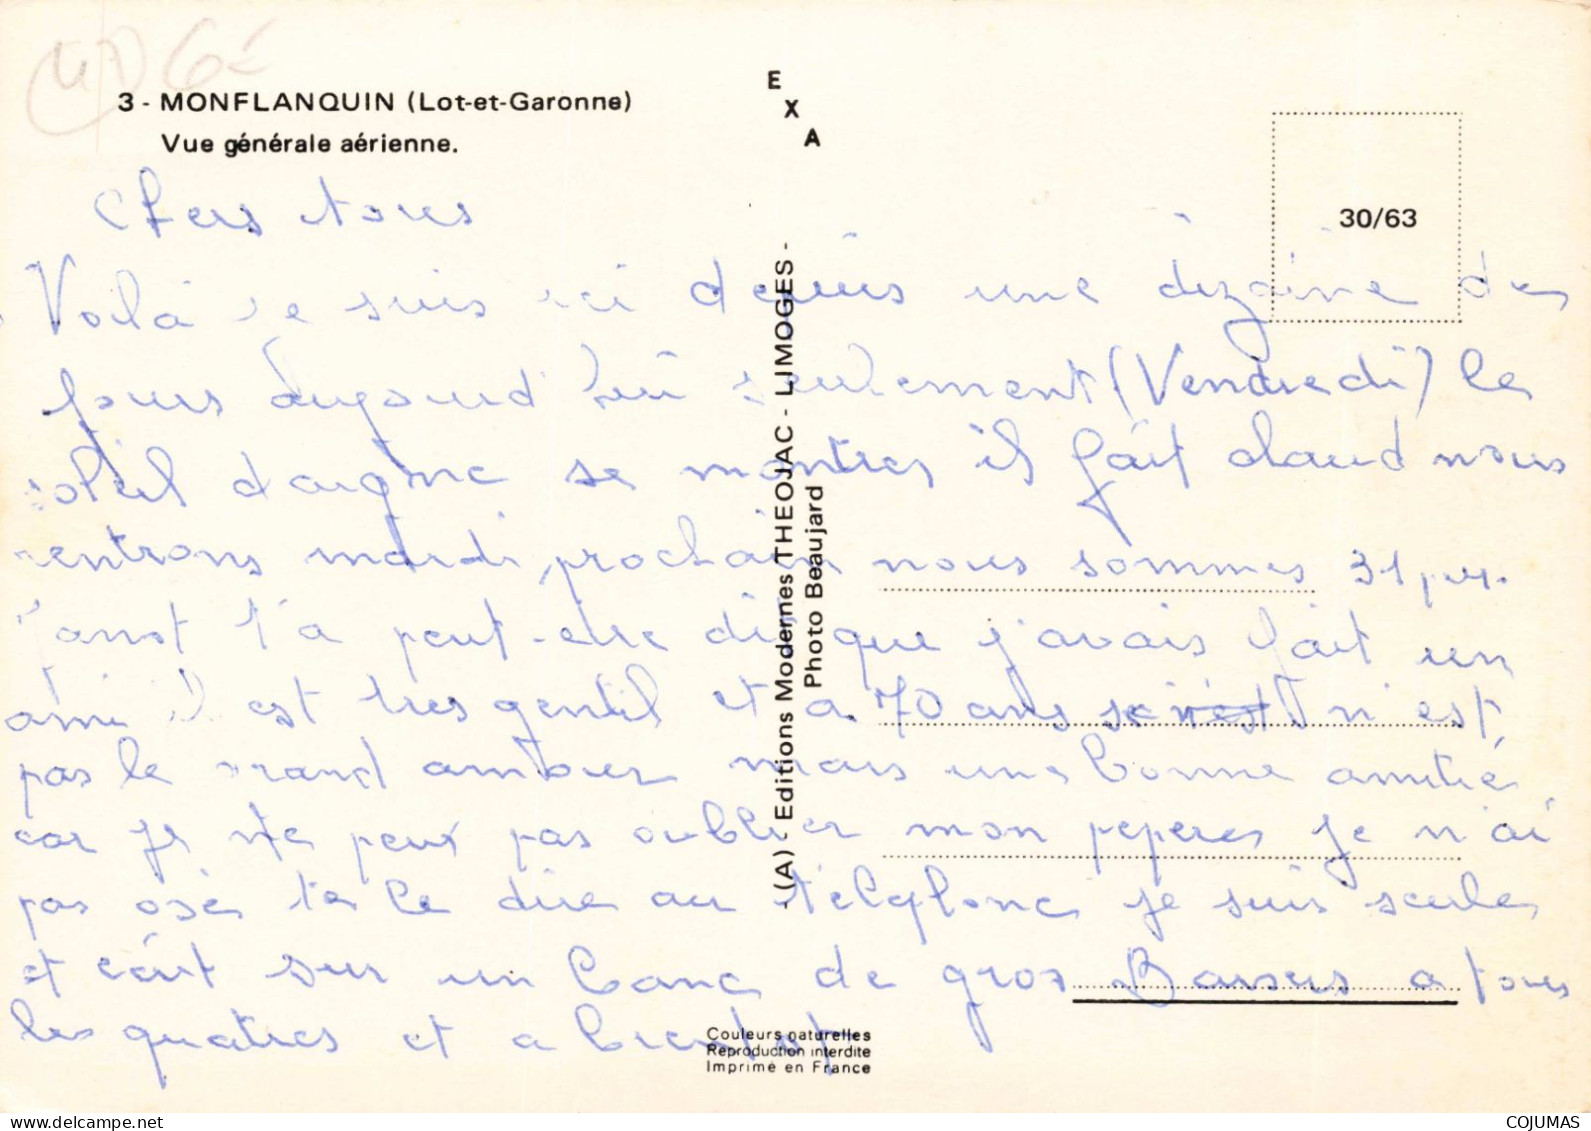 47 6€
3 - MONFLANQUIN (Lot-et-Garonne)
Vue générale aérienne.
E
X
A
30/63
- (A) - Editions Modernes THEOJAC - LIMOGES -
Photo Beaujard
Chers tous
Voilà je suis ici depuis une dizaine de
jours aujourd'hui seulement (Vendredi) le
soleil daigne se montrer il fait chaud nous
rentrons mardi prochain nous sommes 31 per.
t'a peut-etre dit que j'avais fait un
ami il est tres gentil et a 70 ans se n'est n'est
pas le grand amour mais une bonne amitié
car je ne peux pas oublier mon peperes je n'ai
pas osé te le dire au télephone je suis seule
et écrit sur un banc de gros Baisers a tous
les quatres et a bientot
Couleurs naturelles
Reproduction interdite
Imprimé en France
delcampe.net
COJUMAS